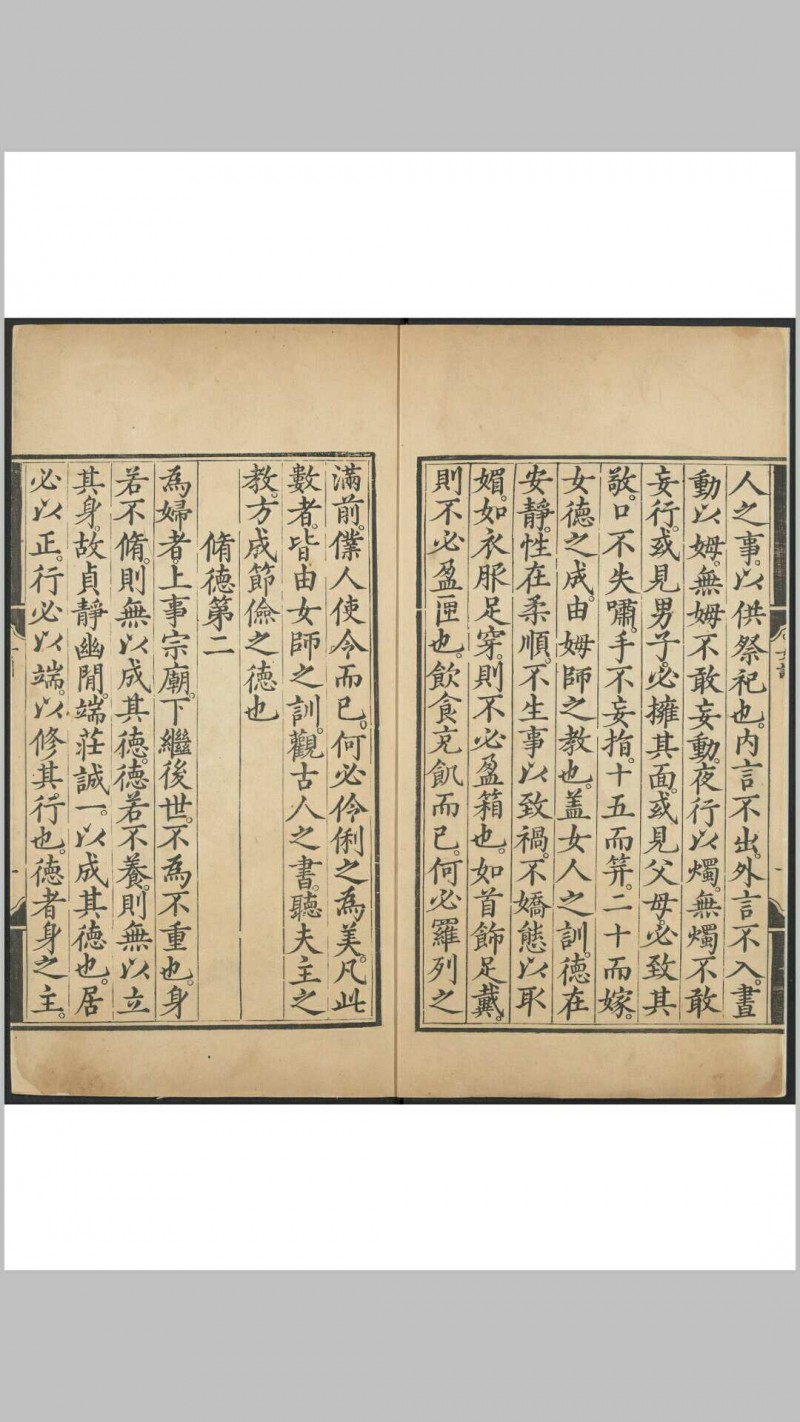 人之事。以供祭祀也。内言不出。外言不入。晝
動以姆。無姆不敢妄動。夜行以燭。無燭不敢
妄行。或見男子。必擁其面。或見父母。必致其
敬。口不失嘯。手不妄指。十五而筓。二十而嫁。
女德之成。由姆師之教也。蓋女人之訓。德在
安靜。性在柔順。不生事以致禍。不嬌態以取
媚。如衣服足穿。則不必盈箱也。如首飾足戴。
則不必盈匣也。飲食充飢而已。何必羅列之
滿前。僕人使令而已。何必伶俐之為美。凡此
數者。皆由女師之訓。觀古人之書。聽夫主之
教。方成節儉之德也
脩德第二
為婦者。上事宗廟。下繼後世。不為不重也。身
若不脩。則無以成其德。德若不養。則無以立
其身。故貞靜幽閒。端莊誠一。以成其德也。居
必以正。行必以端。以修其行也。德者身之主。